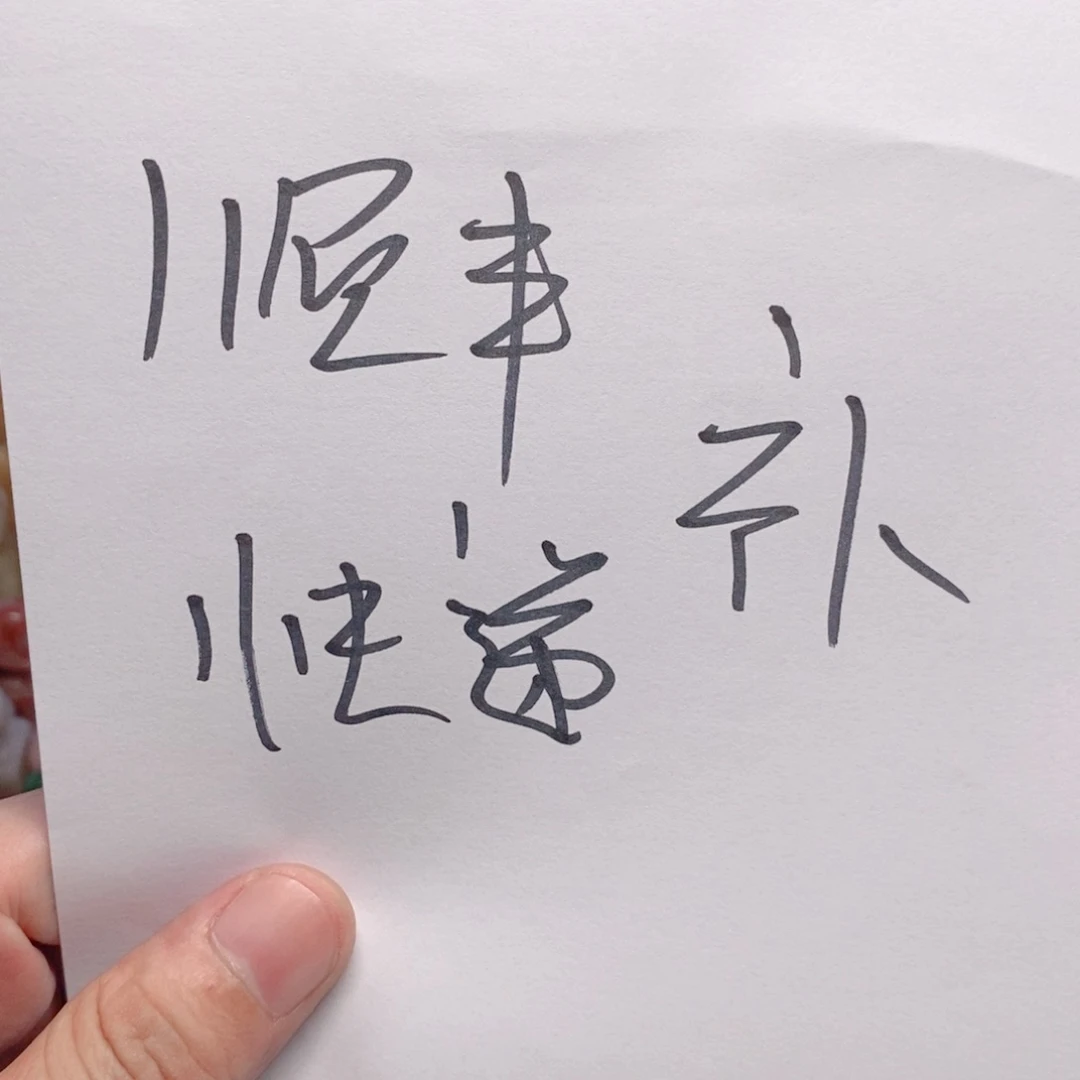 顺丰
快递
补